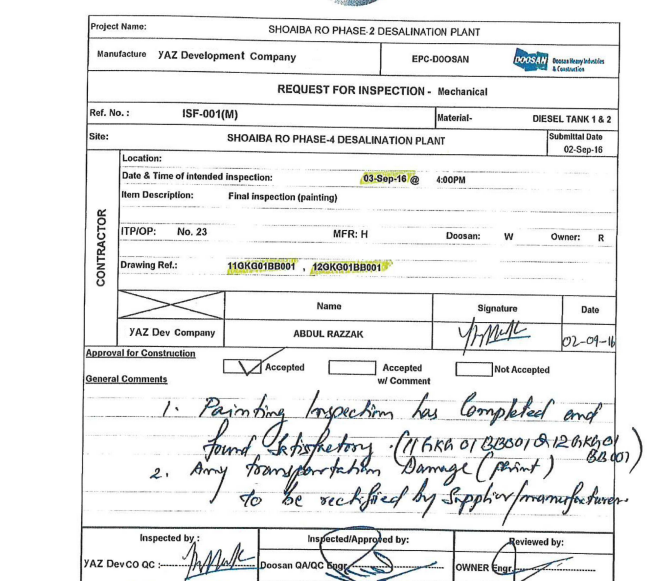 Project Name: SHOAIBA RO PHASE-2 DESALINATION PLANT
Manufacture YAZ Development Company EPC-DOOSAN DOOSAN Doosan Heavy Industries & Construction
REQUEST FOR INSPECTION - Mechanical
Ref. No. : ISF-001(M) Material- DIESEL TANK 1 & 2
Site: SHOAIBA RO PHASE-4 DESALINATION PLANT Submittal Date
02-Sep-16
CONTRACTOR
Location:
Date & Time of intended inspection: 03-Sep-16 @ 4:00PM
Item Description: Final inspection (painting)
ITP/OP: No. 23 MFR: H Doosan: W Owner: R
Drawing Ref.: 11GKG01BB001 , 12GKG01BB001
Name Signature Date
YAZ Dev Company ABDUL RAZZAK 02-09-16
Approval for Construction
Accepted Accepted w/ Comment Not Accepted
General Comments
1. Painting Inspection has Completed and
found Satisfactory. (11GKG01BB001 & 12GKG01
BB001)
2. Any transportation Damage (paint)
to be rectified by Supplier/manufacturer.
Inspected by : Inspected/Approved by: Reviewed by:
YAZ DevCO QC : Doosan QA/QC Engr. OWNER Engr.